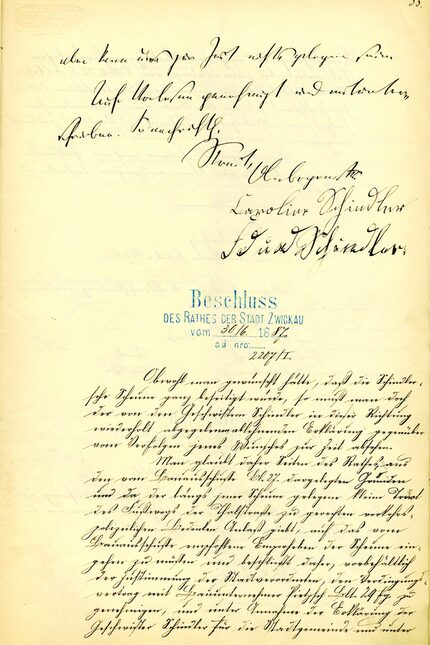 33.
aber kann uns zur Zeit nichts gelegen sein
Auf Vorlesen genehmigt und mitunter-
schrieben. So nachrichtl.
Caroline Schindler
Eduard Schindler.
Beschluss
DES RATHES DER STADT ZWICKAU
vom 30/6 1887
ad nro:
2207/I.
Obwohl man gewünscht hätte, daß die Schindler-
sche Scheune ganz beseitigt würde, so muß man doch
der von den Geschwistern Schindler in dieser Richtung
wiederholt abgegebenen ablehnenden Erklärung gegenüber
vom Verfolgen jenes Wunsches zur Zeit absehen.
Man glaubt daher Seiten des Rathes aus
den vom Bauausschusse Bl. 27. dargelegten Gründen
und da der längs jener Scheune gelegene kleine
des Fußwegs der Thalstraße zu gerechten verkehrs-
polizeilichen Bedenken Anlaß giebt, auf das vom
Bauausschusse empfohlene der Scheune ein-
gehen zu müssen und beschließt daher, vorbehältlich
der Zustimmung der Stadtverordneten, den Verdingungs-
vertrag mit Bauunternehmer Bl. 29 fg. zu
genehmigen, und unter Annahme der Erklärung der
Geschwister Schindler für die Stadtgemeinde und unter